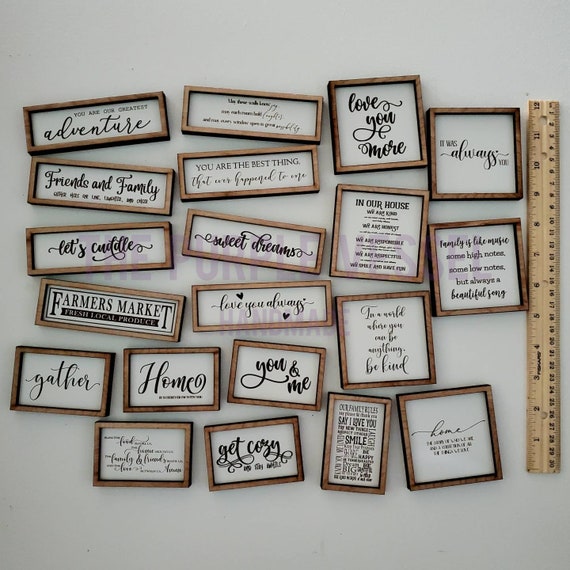 YOU ARE OUR GREATEST
adventure
May these walls know joy,
may each room hold laughter
and may every window open to great possibility
love
you
more
IT WAS
always
YOU
Friends and Family
GATHER HERE
YOU ARE THE BEST THING,
that ever happened to me
IN OUR HOUSE
WE ARE KIND
WE ARE HONEST
WE ARE RESPONSIBLE
WE ARE RESPECTFUL
WE SMILE AND HAVE FUN
let's cuddle
sweet dreams
Family is like music
some high notes,
some low notes,
but always a
beautiful song
FARMERS MARKET
FRESH LOCAL PRODUCE
love you always
In a world
where you
can be
anything,
be kind
gather
Home
you &
me
food
home
family & friends
love
Amen
get cozy
AND STAY AWHILE
OUR FAMILY RULES
SAY I LOVE YOU
SMILE
home
THE THINGS WE LOVE
THE PURPLE
HANDMADE
12
11
10
9
8
7
6
5
4
3
2
1